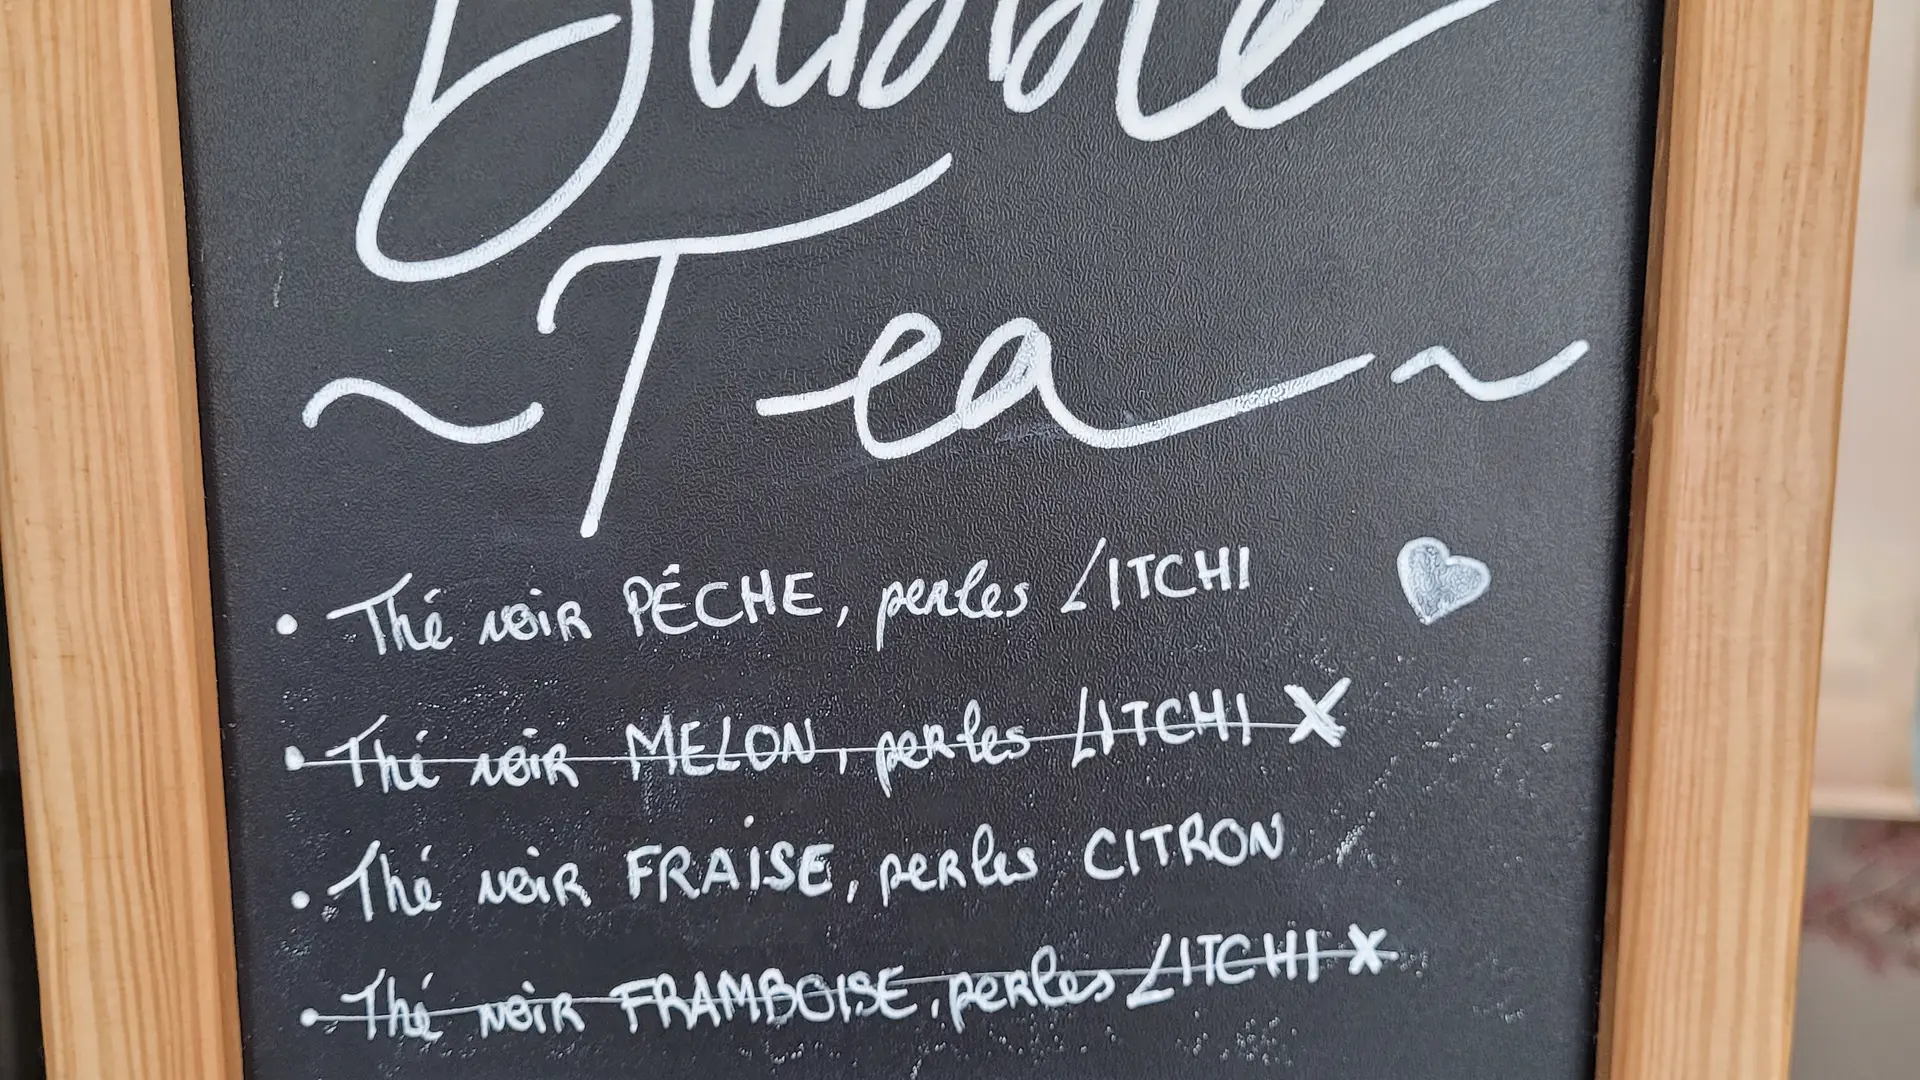 Bubble
~Tea~
• Thé noir PÊCHE, perles LITCHI
• Thé noir MELON, perles LITCHI X
• Thé noir FRAISE, perles CITRON
• Thé noir FRAMBOISE, perles LITCHI X